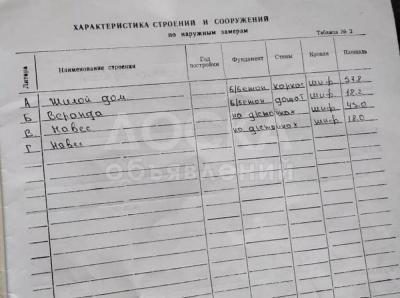 ХАРАКТЕРИСТИКА СТРОЕНИЙ И СООРУЖЕНИЙ
по наружным замерам
Таблица № 2
Литера Наименование строения Год постройки Фундамент Стены Кровля Площадь
А Жилой дом б/бетон каркас шиф. 57.8
Б Веранда б/бетон дощат шиф. 18.2
В Навес на д/стойках шиф. 45.0
Г Навес на д/стойках шиф. 18.0
ДОСКА
объявлений